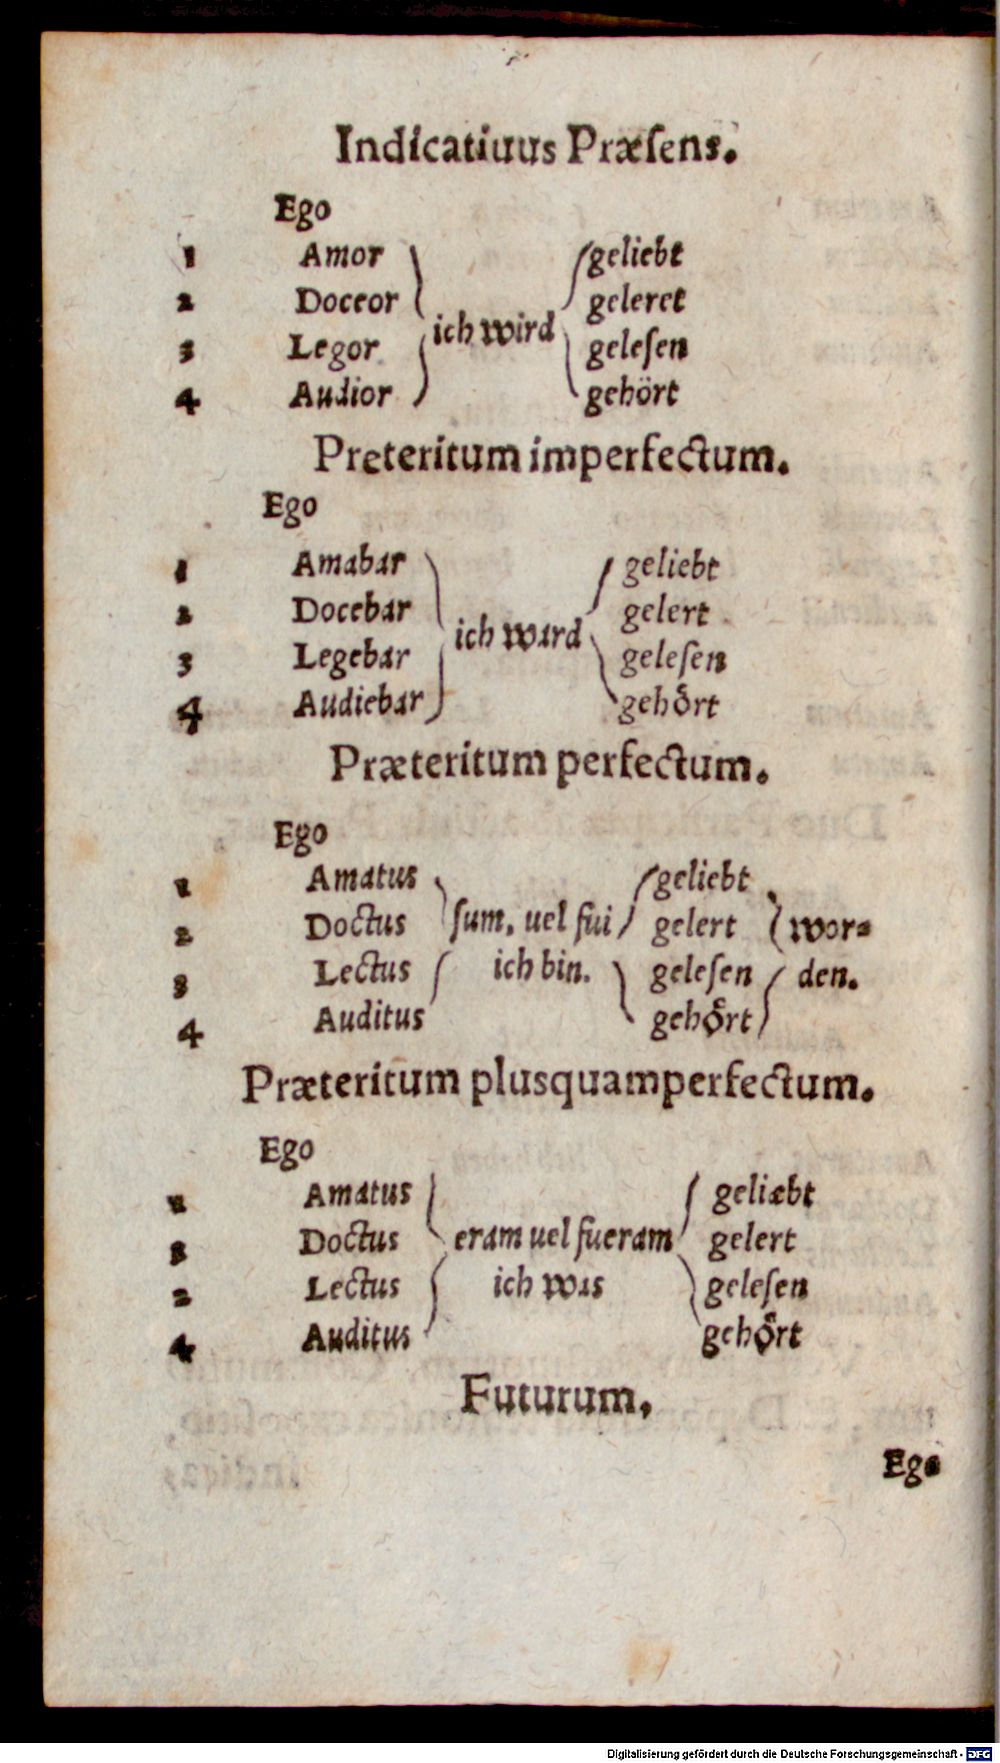 Indicatiuus Præſens.
Ego
1 Amor geliebt
2 Doceor geleret
ich wird
3 Legor geleſen
4 Audior gehört
Preteritum imperfectum.
Ego
1 Amabar geliebt
2 Docebar gelert
ich ward
3 Legebar geleſen
4 Audiebar gehoͤrt
Præteritum perfectum.
Ego
1 Amatus geliebt
2 Doctus ſum, uel fui gelert wor=
3 Lectus ich bin. geleſen den.
4 Auditus gehoͤrt
Præteritum plusquamperfectum.
Ego
1 Amatus geliebt
3 Doctus eram uel fueram gelert
2 Lectus ich was geleſen
4 Auditus gehoͤrt
Futurum,
Ego
Digitalisierung gefördert durch die Deutsche Forschungsgemeinschaft - DFG